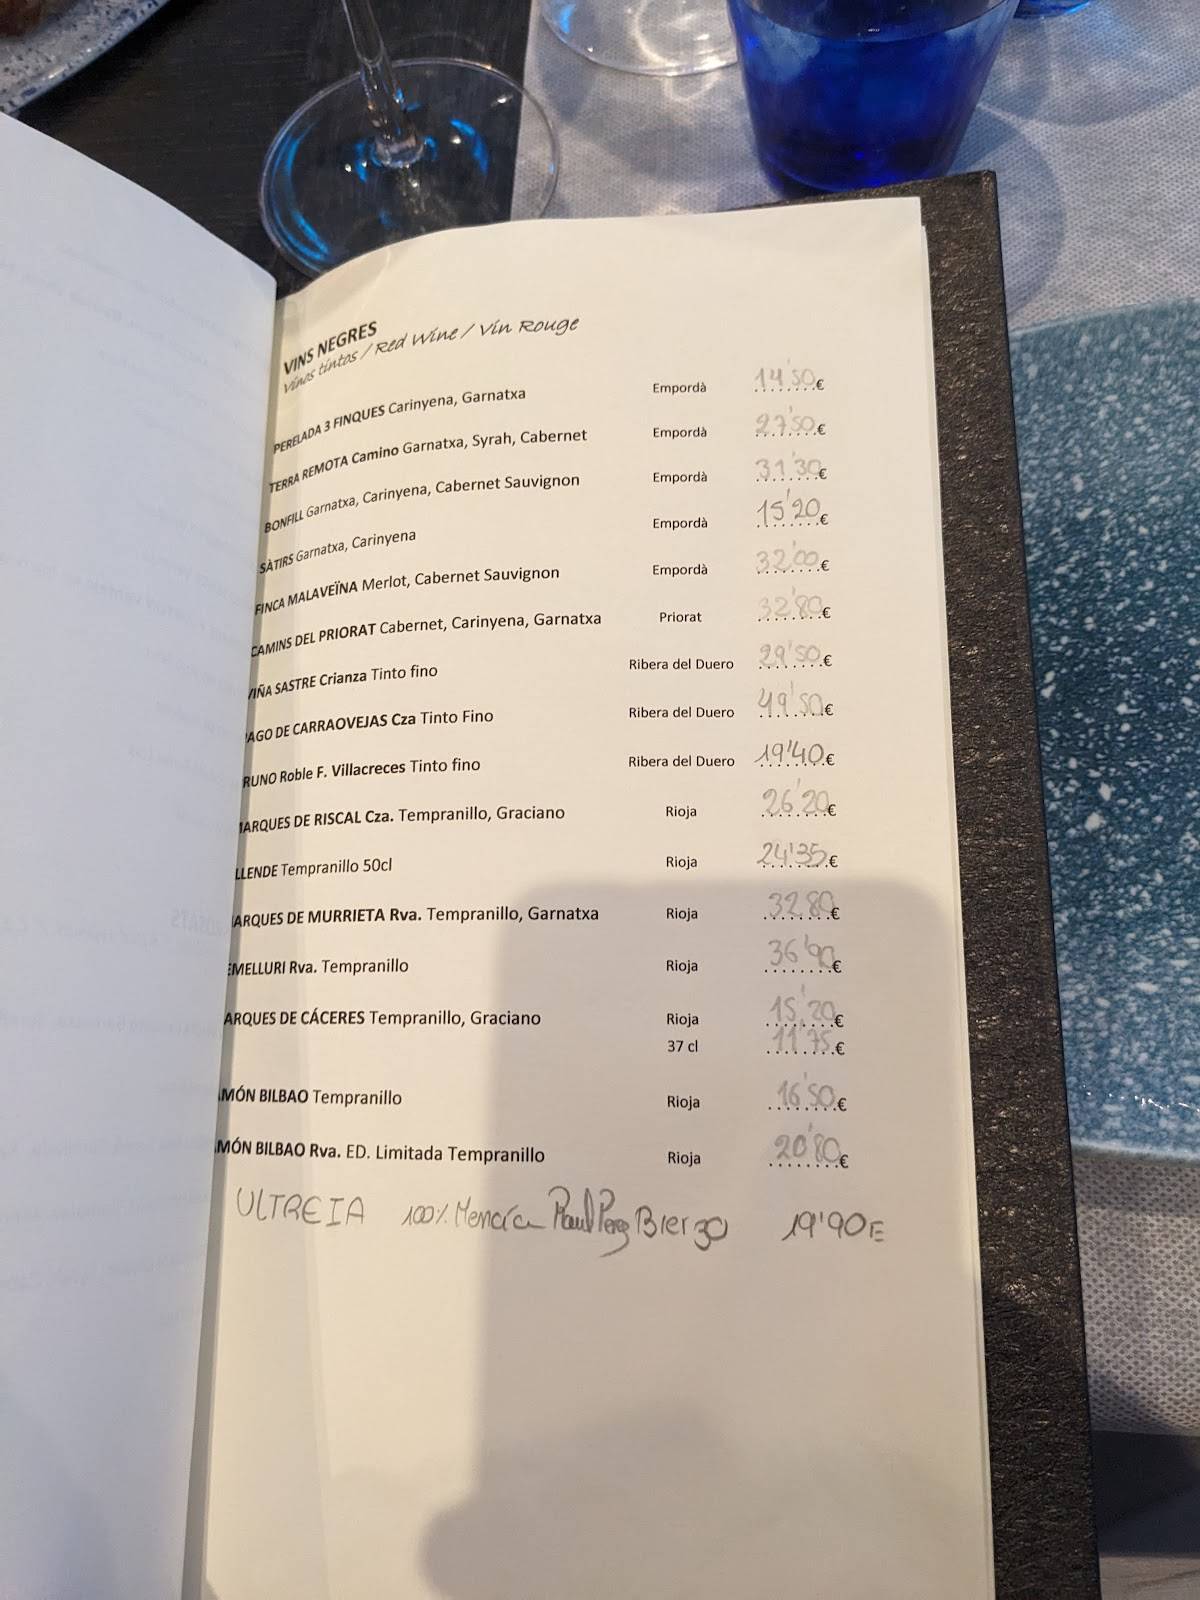 VINS NEGRES
Vinos tintos / Red Wine / Vin Rouge
PERELADA 3 FINQUES Carinyena, Garnatxa Empordà 14'50€
TERRA REMOTA Camino Garnatxa, Syrah, Cabernet Empordà 27'50€
BONFILL Garnatxa, Carinyena, Cabernet Sauvignon Empordà 31'30€
SÀTIRS Garnatxa, Carinyena Empordà 15'20€
FINCA MALAVEÏNA Merlot, Cabernet Sauvignon Empordà 32'00€
CAMINS DEL PRIORAT Cabernet, Carinyena, Garnatxa Priorat 32'80€
VIÑA SASTRE Crianza Tinto fino Ribera del Duero 29'50€
AGO DE CARRAOVEJAS Cza Tinto Fino Ribera del Duero 49'50€
RUNO Roble F. Villacreces Tinto fino Ribera del Duero 19'40€
MARQUES DE RISCAL Cza. Tempranillo, Graciano Rioja 26'20€
LLENDE Tempranillo 50cl Rioja 24'35€
ARQUES DE MURRIETA Rva. Tempranillo, Garnatxa Rioja 32'80€
EMELLURI Rva. Tempranillo Rioja 36'90€
ARQUES DE CÁCERES Tempranillo, Graciano Rioja 15'20€
37 cl 11'75€
MÓN BILBAO Tempranillo Rioja 16'50€
MÓN BILBAO Rva. ED. Limitada Tempranillo Rioja 20'80€
ULTREIA 100% Mencía Raul Perez Bierzo 19'90€